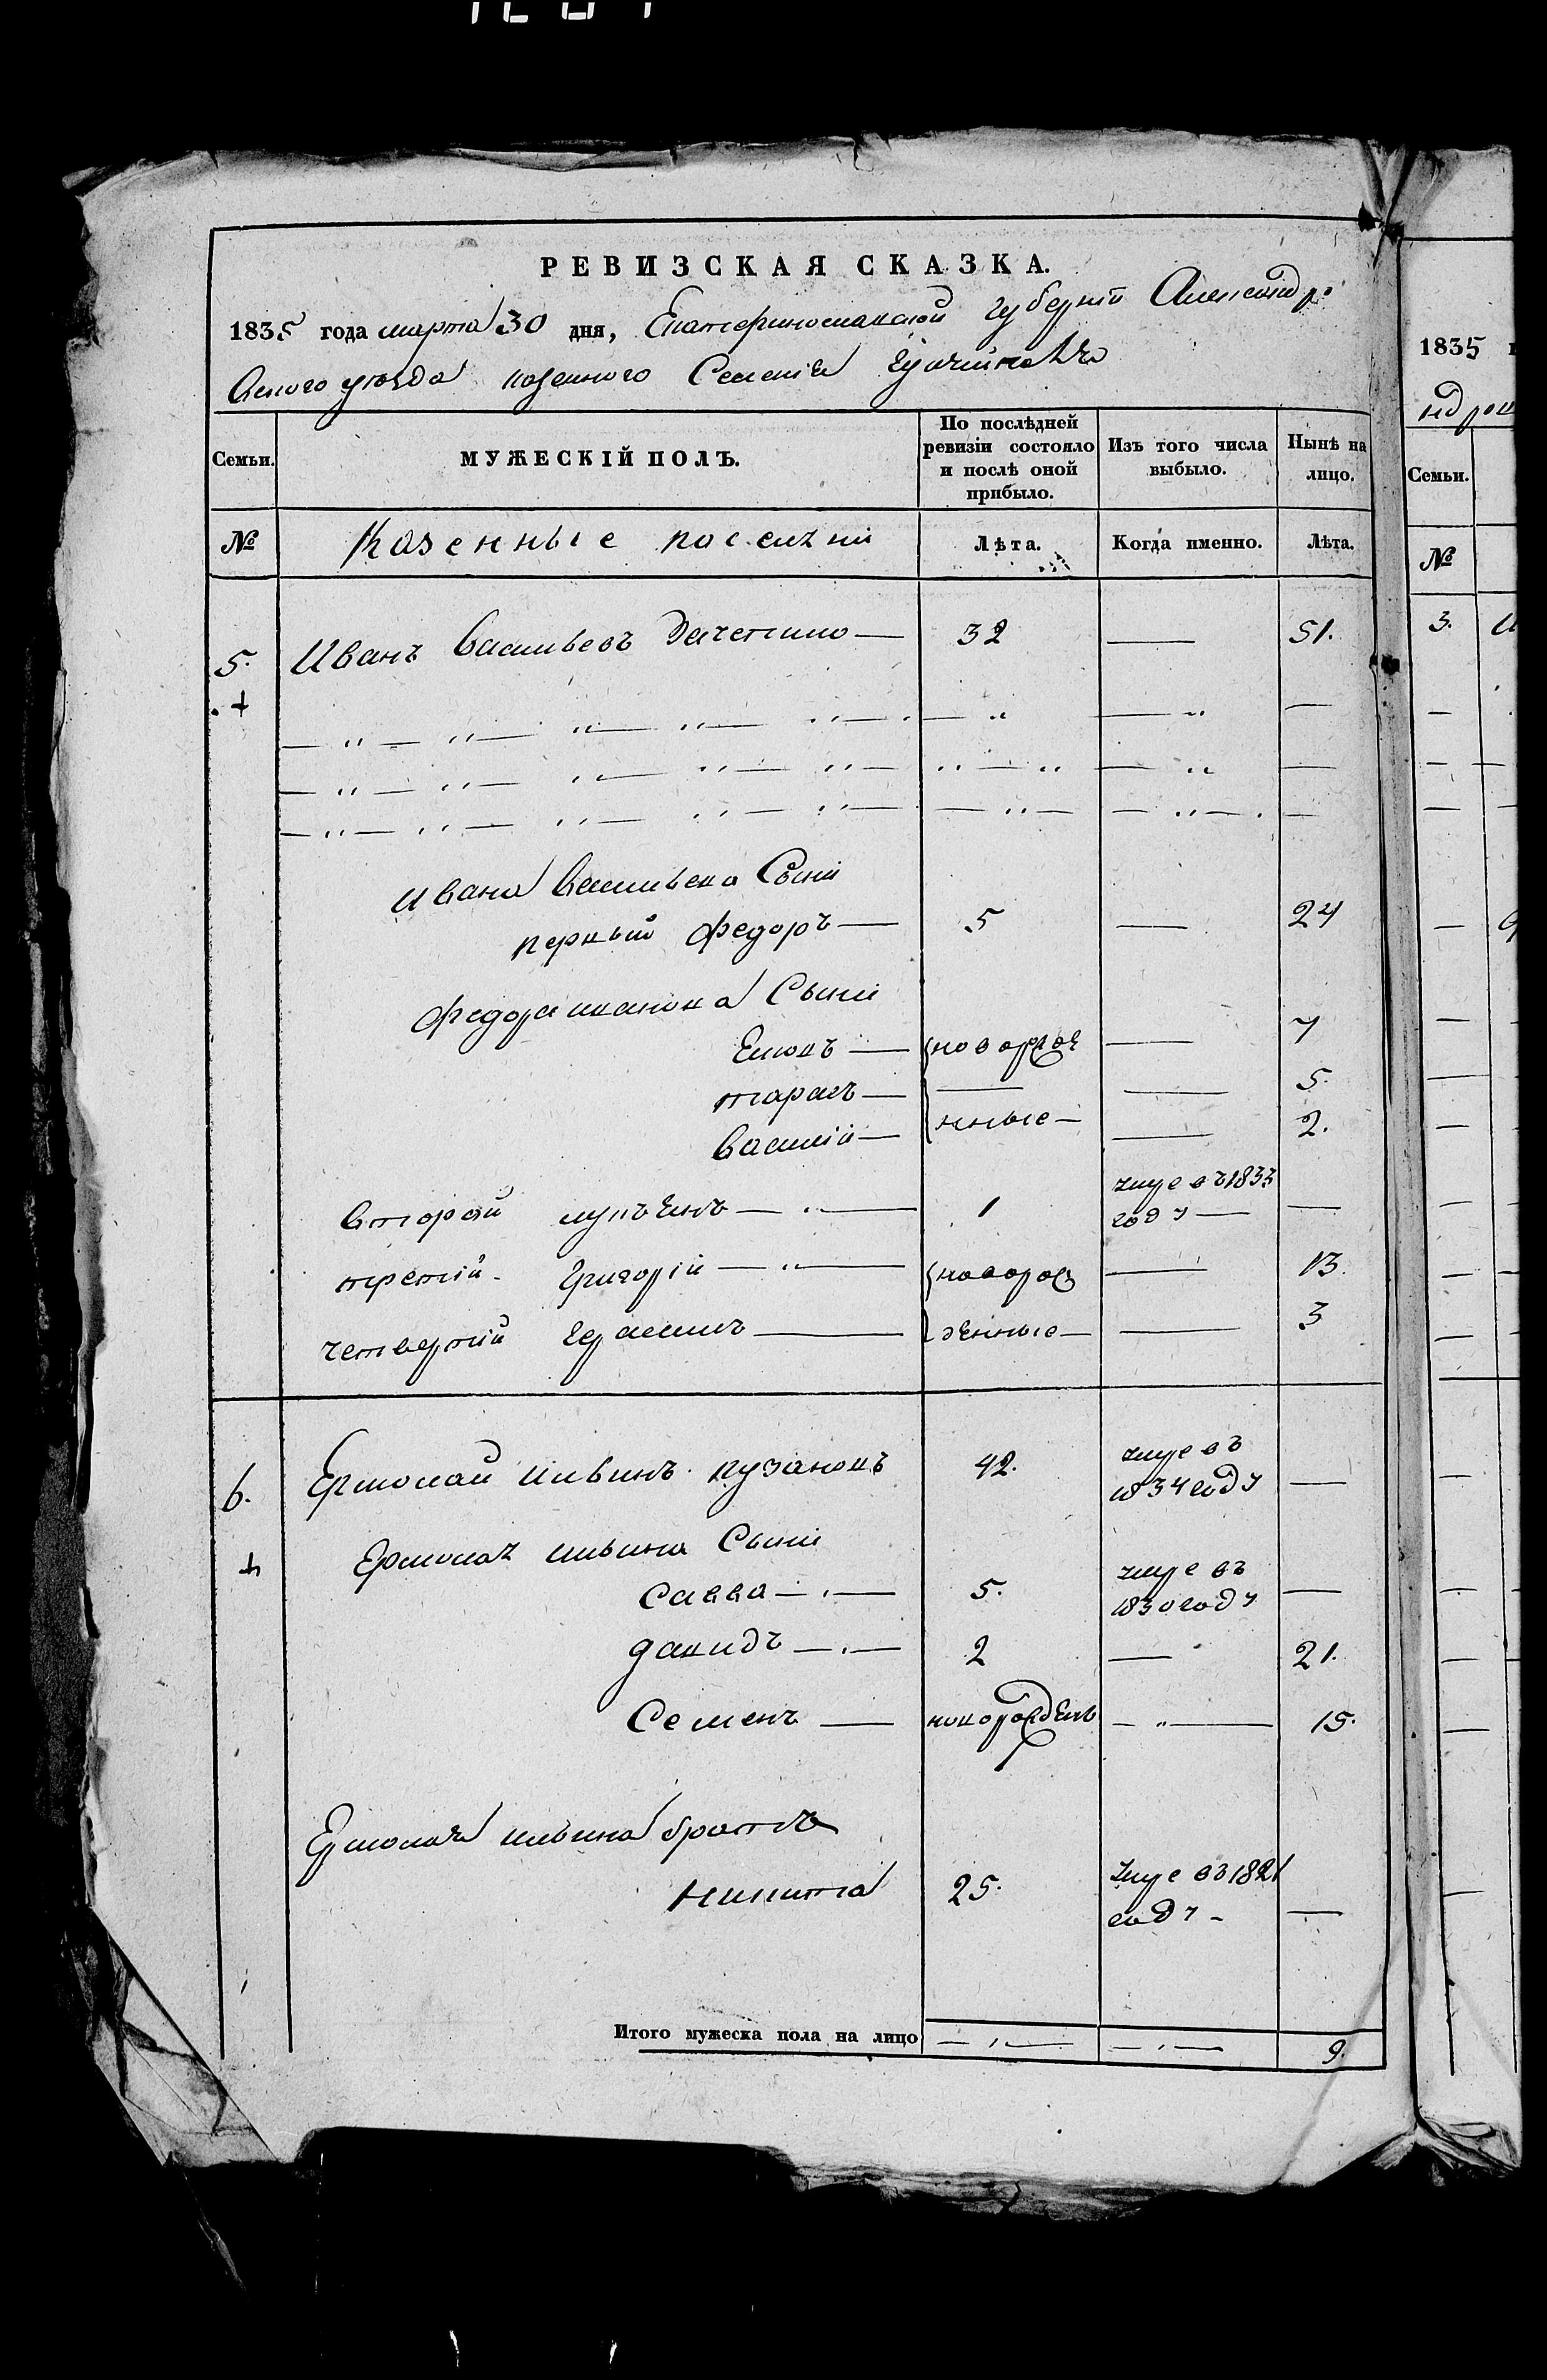 РЕВИЗСКАЯ СКАЗКА.
1835 года марта 30 дня, Екатеринославской губерніи Александро
вского уѣзда казенного Селенія
Семьи. МУЖЕСКІЙ ПОЛЪ. По послѣдней ревизіи состояло и послѣ оной прибыло. Изъ того числа выбыло. Нынѣ на лицо.
№ Казенные поселяни Лѣта. Когда именно. Лѣта.
5. Иванъ Васильевъ — 32 — 51.
Ивана Васильева Сыни
первый Федоръ — 5 — 24
Федора иванова Сыни
— новорож — 7
тарасъ — — — 5.
василій — нные — — 2.
второй лукъянъ — 1 умре въ 1833 году — —
третій Григорій — новорож — 13.
четвертій Герасимъ — дѣнные — — 3
6. Ермолай ильинъ пузановъ 42. умре въ 1834 году —
Ермолая ильина Сыни
Савва — 5. умре въ 1830 году —
давидъ — 2 — 21.
Семенъ — новорожденъ — 15.
Ермолая ильина братъ
никита 25. умре въ 1821 году - —
Итого мужеска пола на лицо — — 9.
1835
ндров
Семьи.
№
3.